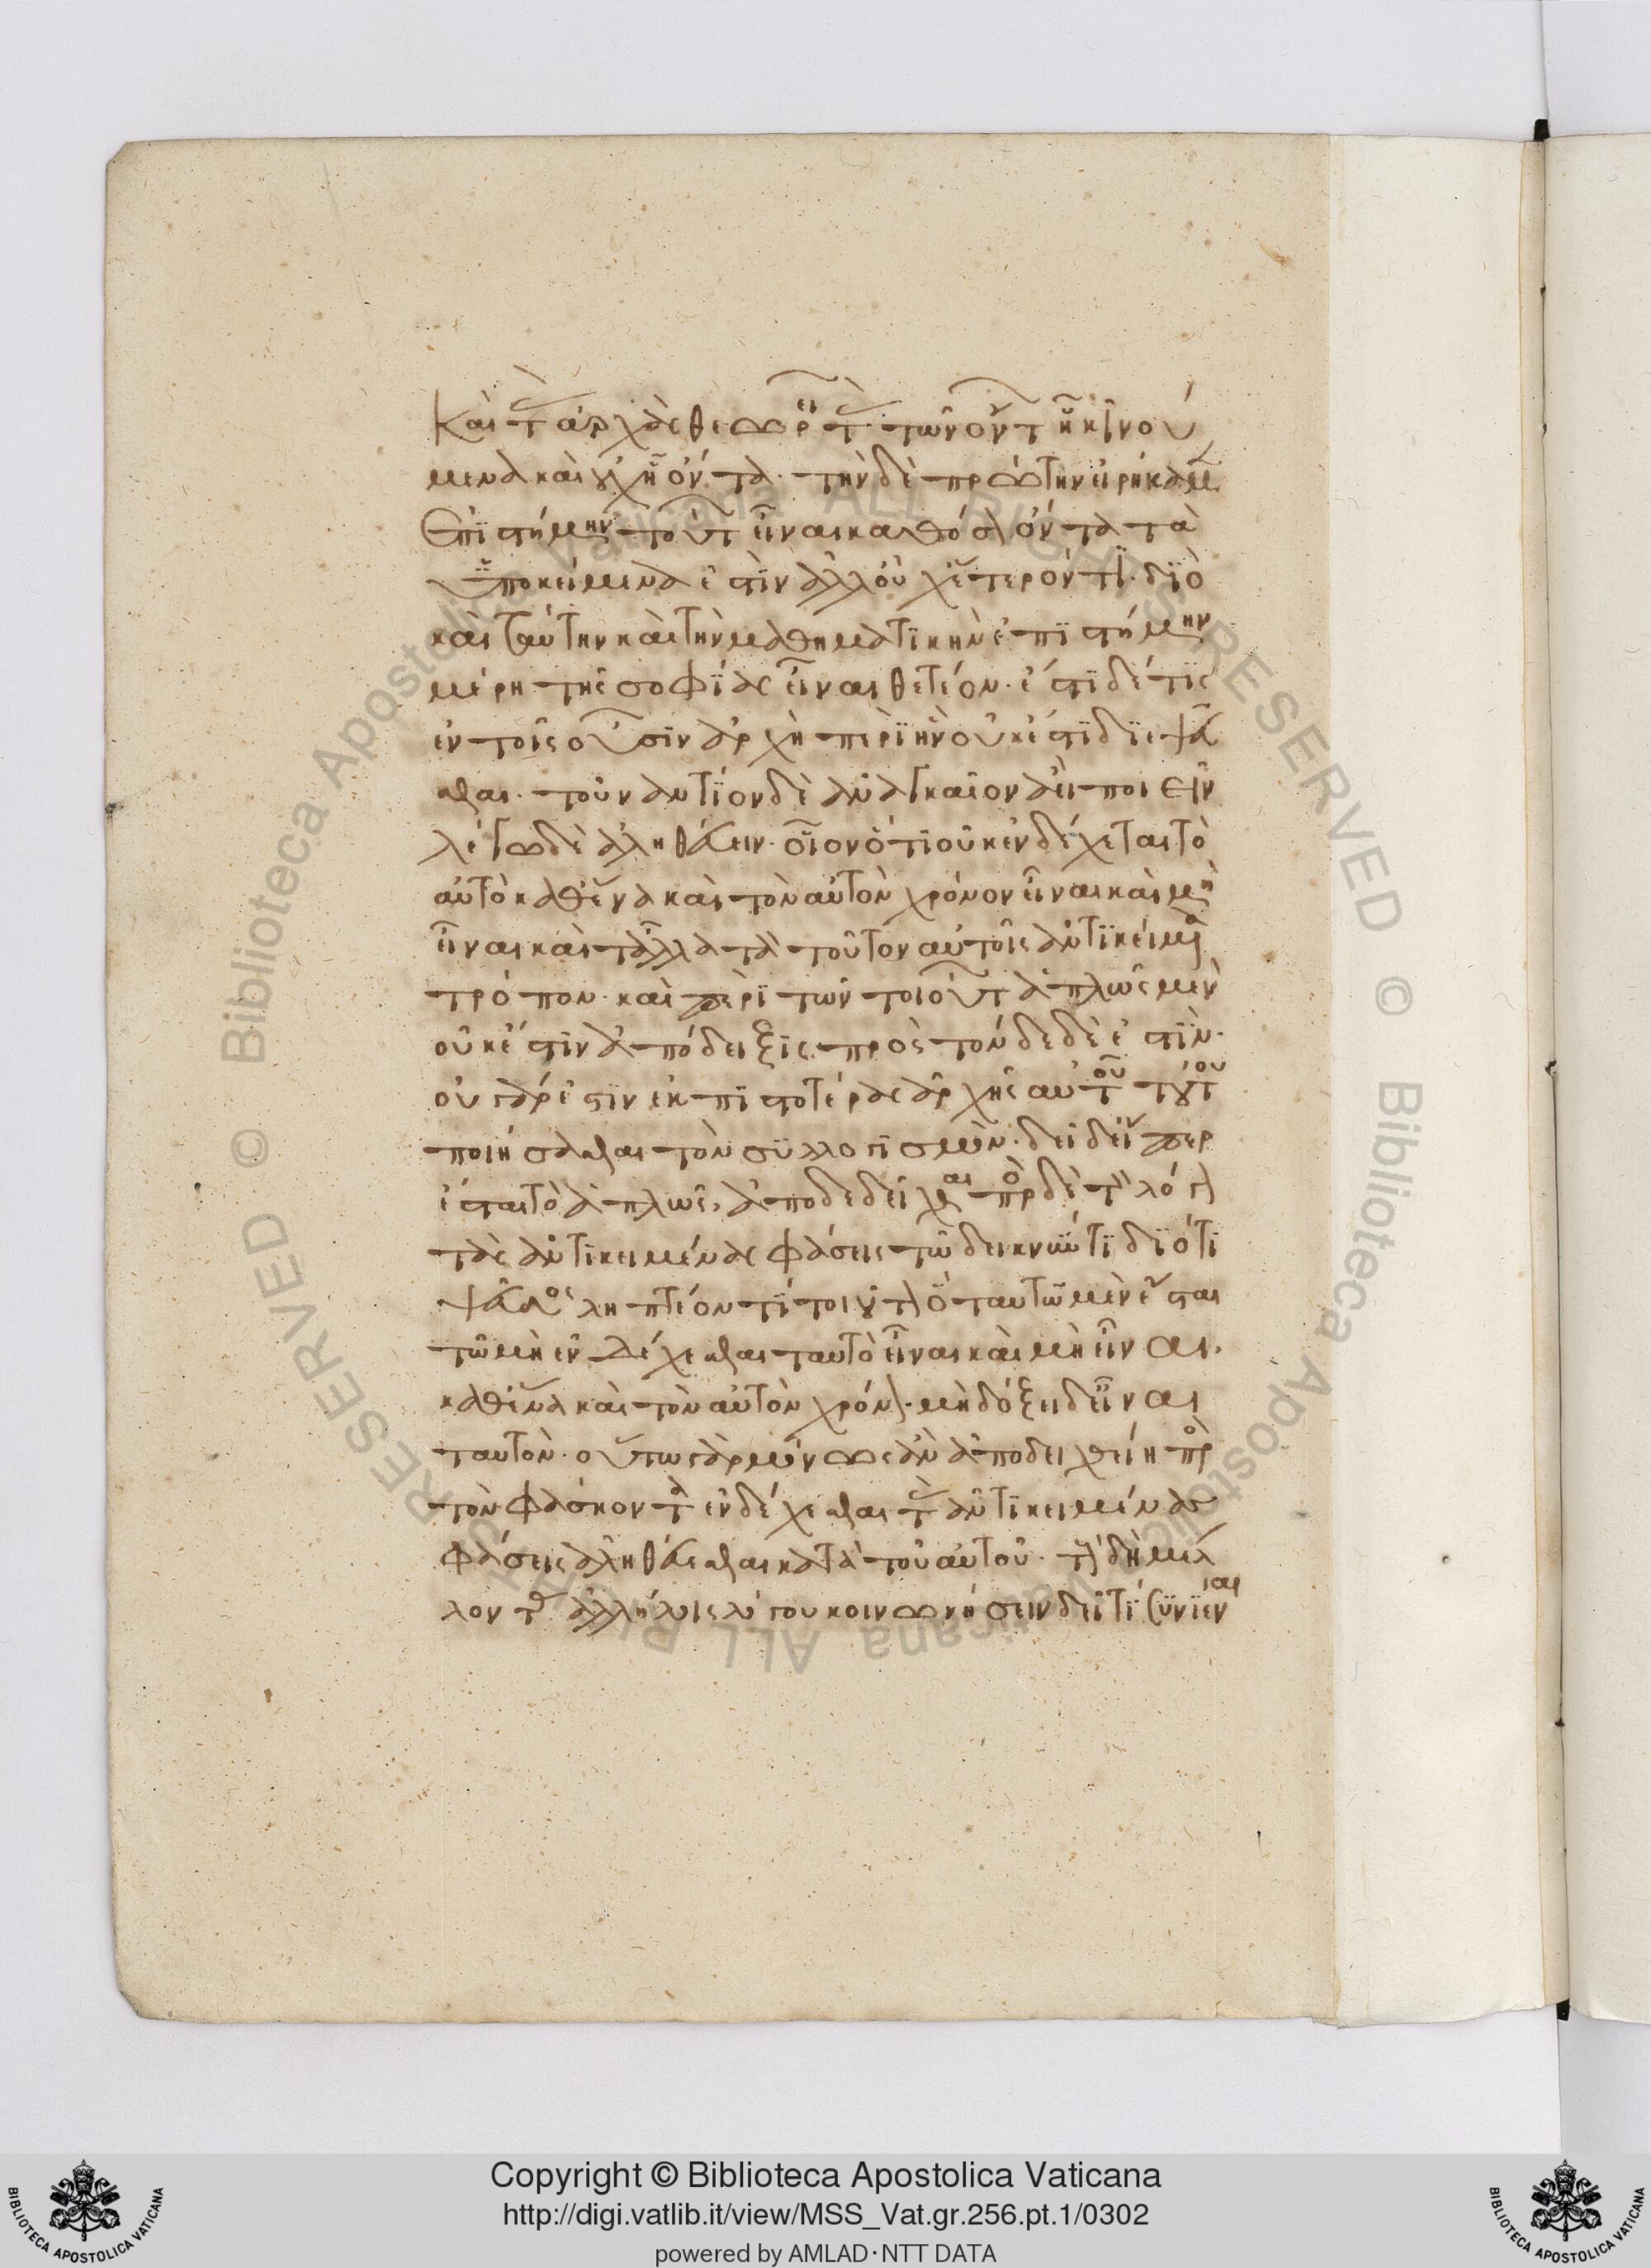 καὶ τὰς ἀρχὰς θεωρεῖ τὰς τῶν ὄντων ᾗ κινού
μενα καὶ οὐχ ᾗ ὄντα· τὴν δὲ πρώτην εἰρήκαμεν
ἐπιστήμην τούτων εἶναι καθόσον ὄντα τὰ
ὑποκείμενά ἐστιν ἀλλ' οὐχ ᾗ ἕτερόν τι· διὸ
καὶ ταύτην καὶ τὴν μαθηματικὴν ἐπιστήμην
μέρη τῆς σοφίας εἶναι θετέον· ἔστι δέ τις
ἐν τοῖς οὖσιν ἀρχὴ περὶ ἣν οὐκ ἔστι διεψεῦ
σθαι· τοὐναντίον δὲ ἀναγκαῖον ἀεὶ ποιεῖν
λέγω δὲ ἀληθεύειν· οἷον ὅτι οὐκ ἐνδέχεται τὸ
αὐτὸ καθ' ἕνα καὶ τὸν αὐτὸν χρόνον εἶναι καὶ μὴ
εἶναι καὶ τἄλλα τὰ τοῦτον αὐτοῖς ἀντικείμενα
τρόπον· καὶ περὶ τῶν τοιούτων ἁπλῶς μὲν
οὐκ ἔστιν ἀπόδειξις· πρὸς τόνδε δὲ ἔστιν·
οὐ γάρ ἐστιν ἐκ πιστοτέρας ἀρχῆς αὐτοῦ τούτου
ποιήσασθαι τὸν συλλογισμόν· δεῖ δὲ εἴπερ
ἔσται τὸ ἁπλῶς ἀποδεδεῖχθαι πρὸς δὲ τὸν λέγοντα
τὰς ἀντικειμένας φάσεις τῷ δεικνύντι διότι
ψεῦδος ληπτέον τι τοιοῦτον ὃ ταυτῷ μὲν ἔσται
τῷ μὴ ἐνδέχεσθαι ταυτὸ εἶναι καὶ μὴ εἶναι
καθ' ἕνα καὶ τὸν αὐτὸν χρόνον· μὴ δόξει δ' εἶναι
ταυτόν· οὕτω γὰρ μόνως ἂν ἀποδειχθείη πρὸς
τὸν φάσκοντα ἐνδέχεσθαι τὰς ἀντικειμένας
φάσεις ἀληθεύεσθαι κατὰ τοῦ αὐτοῦ· τοὺς δὴ μέλ
λοντας ἀλλήλοις λόγου κοινωνήσειν δεῖ τι συνιέναι
Copyright © Biblioteca Apostolica Vaticana
http://digi.vatlib.it/view/MSS_Vat.gr.256.pt.1/0302
powered by AMLAD·NTT DATA